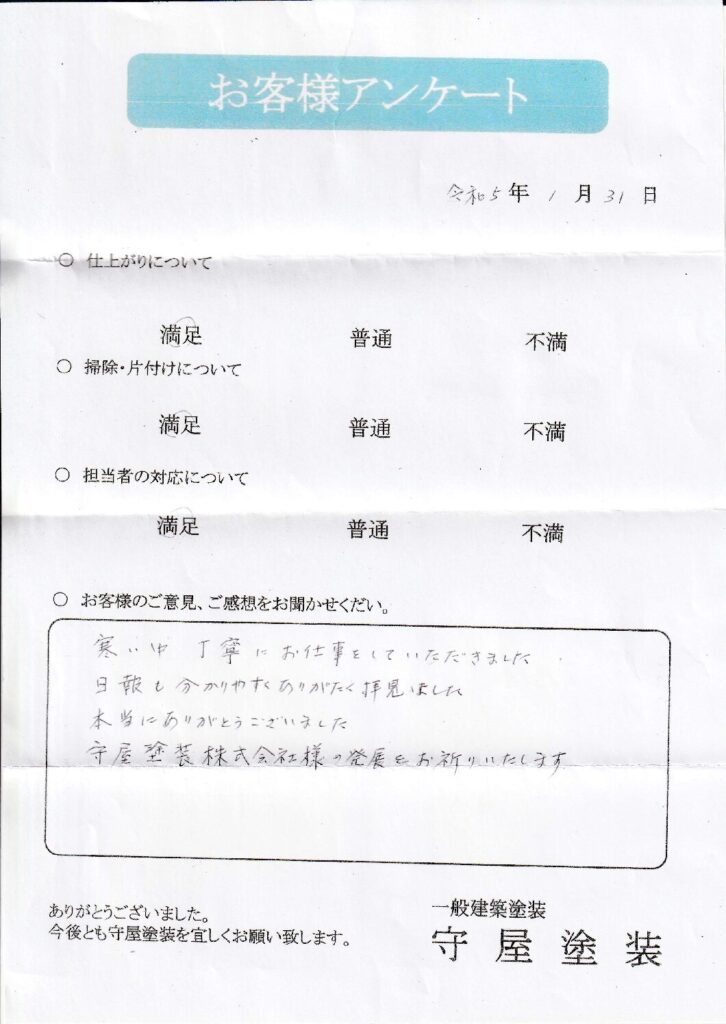 お客様アンケート
令和5年 1月 31日
○ 仕上がりについて
満足 普通 不満
○ 掃除・片付けについて
満足 普通 不満
○ 担当者の対応について
満足 普通 不満
○ お客様のご意見、ご感想をお聞かせくだい。
寒い中 丁寧にお仕事をしていただきました
日報も分かりやすくありがたく拝見しました
本当にありがとうございました
守屋塗装株式会社様の発展をお祈りいたします
ありがとうございました。
今後とも守屋塗装を宜しくお願い致します。
一般建築塗装
守屋塗装